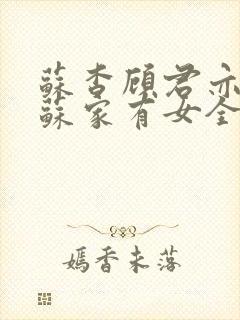 蘇杏顧君亦
蘇家有女全
嫣香未落